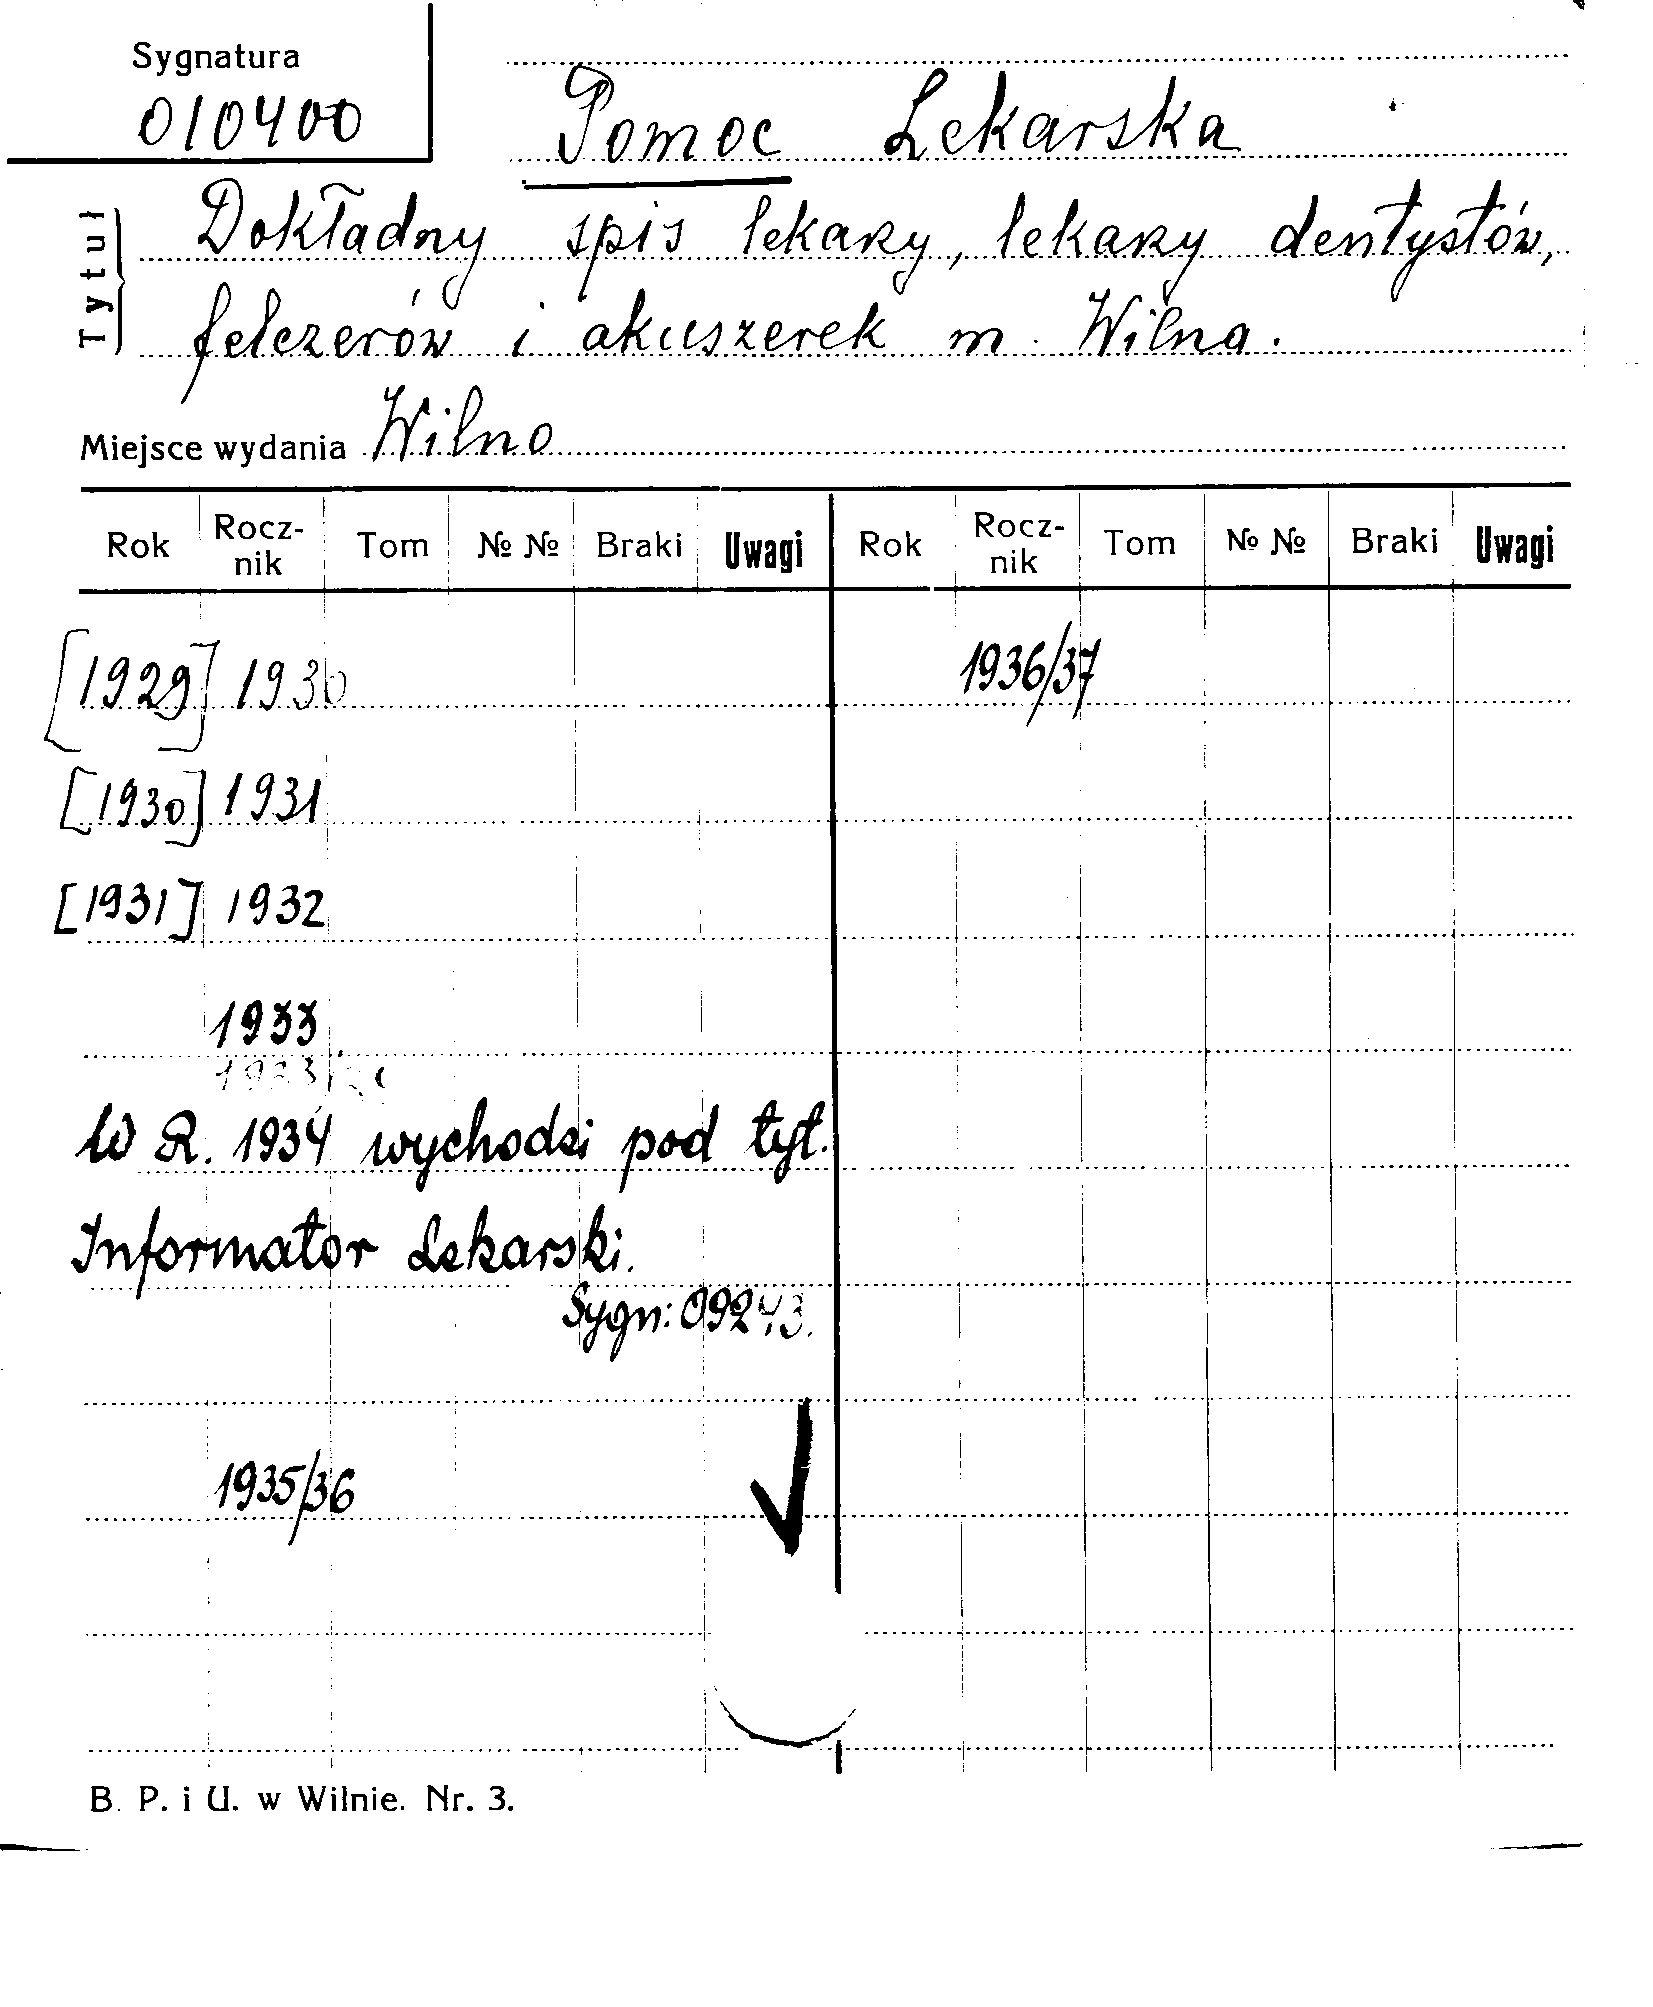 Sygnatura
010400
Pomoc Lekarska
Tytuł
Dokładny spis lekarzy, lekarzy dentystów,
felczerów i akuszerek m. Wilna.
Miejsce wydania Wilno
Rok Rocz-nik Tom № № Braki Uwagi Rok Rocz-nik Tom № № Braki Uwagi
[1929] 1930 1936/37
[1930] 1931
[1931] 1932
1933
W R. 1934 wychodzi pod tyt.
Informator Lekarski.
Sygn: 09243.
1935/36
B. P. i U. w Wilnie. Nr. 3.